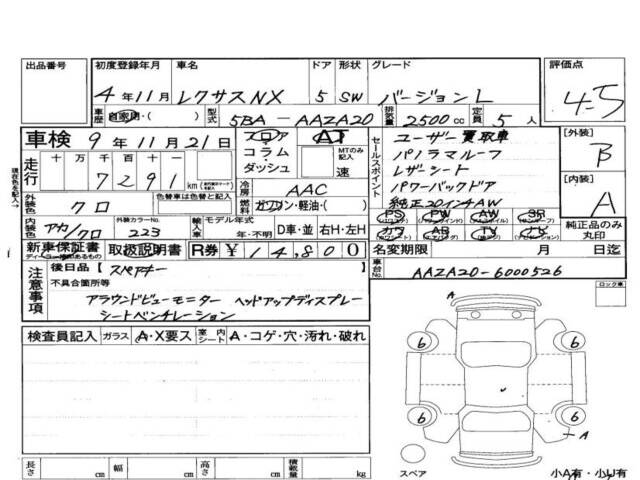 出品番号 初度登録年月 車名 ドア 形状 グレード 評価点
4年11月 レクサスNX 5 SW バージョンL 4.5
車歴 自家用・( ) 型式 5BA-AAZA20 排気量 2500cc 定員 5人
車検 9年11月21日 シフト フロア AT セールスポイント ユーザー買取車 [外装]
コラム・ダッシュ MTのみ記入 速 パノラマルーフ B
走行 十 万 千 百 十 一 レザーシート
7291 km 冷房 AAC パワーバックドア [内装]
外装色 クロ 色替車は色替と表示 燃料 ガソリン・軽油・( ) 純正20インチAW A
内装色 アカ/クロ 外装カラーNo. 223 輸入車 モデル年式 年・不明 D車・並 右H・左H PS PW AW SR カワ AB TV ナビ 純正品のみ丸印
新車保証書 取扱説明書 R券 ¥14,800 名変期限 月 日迄
ディーラー捺印のあるもの
注意事項 後日品【 スペアキー 】 車台No. AAZA20-6000526
不具合箇所等 ロック車
アラウンドビューモニター ヘッドアップディスプレー
シートベンチレーション
検査員記入 ガラス A・X要ス 室内シート A・コゲ・穴・汚れ・破れ
A
6 6
6 6
A
長さ cm 幅 cm 高さ cm 積載量 kg スペア 小A有・小U有
現在色を記入→